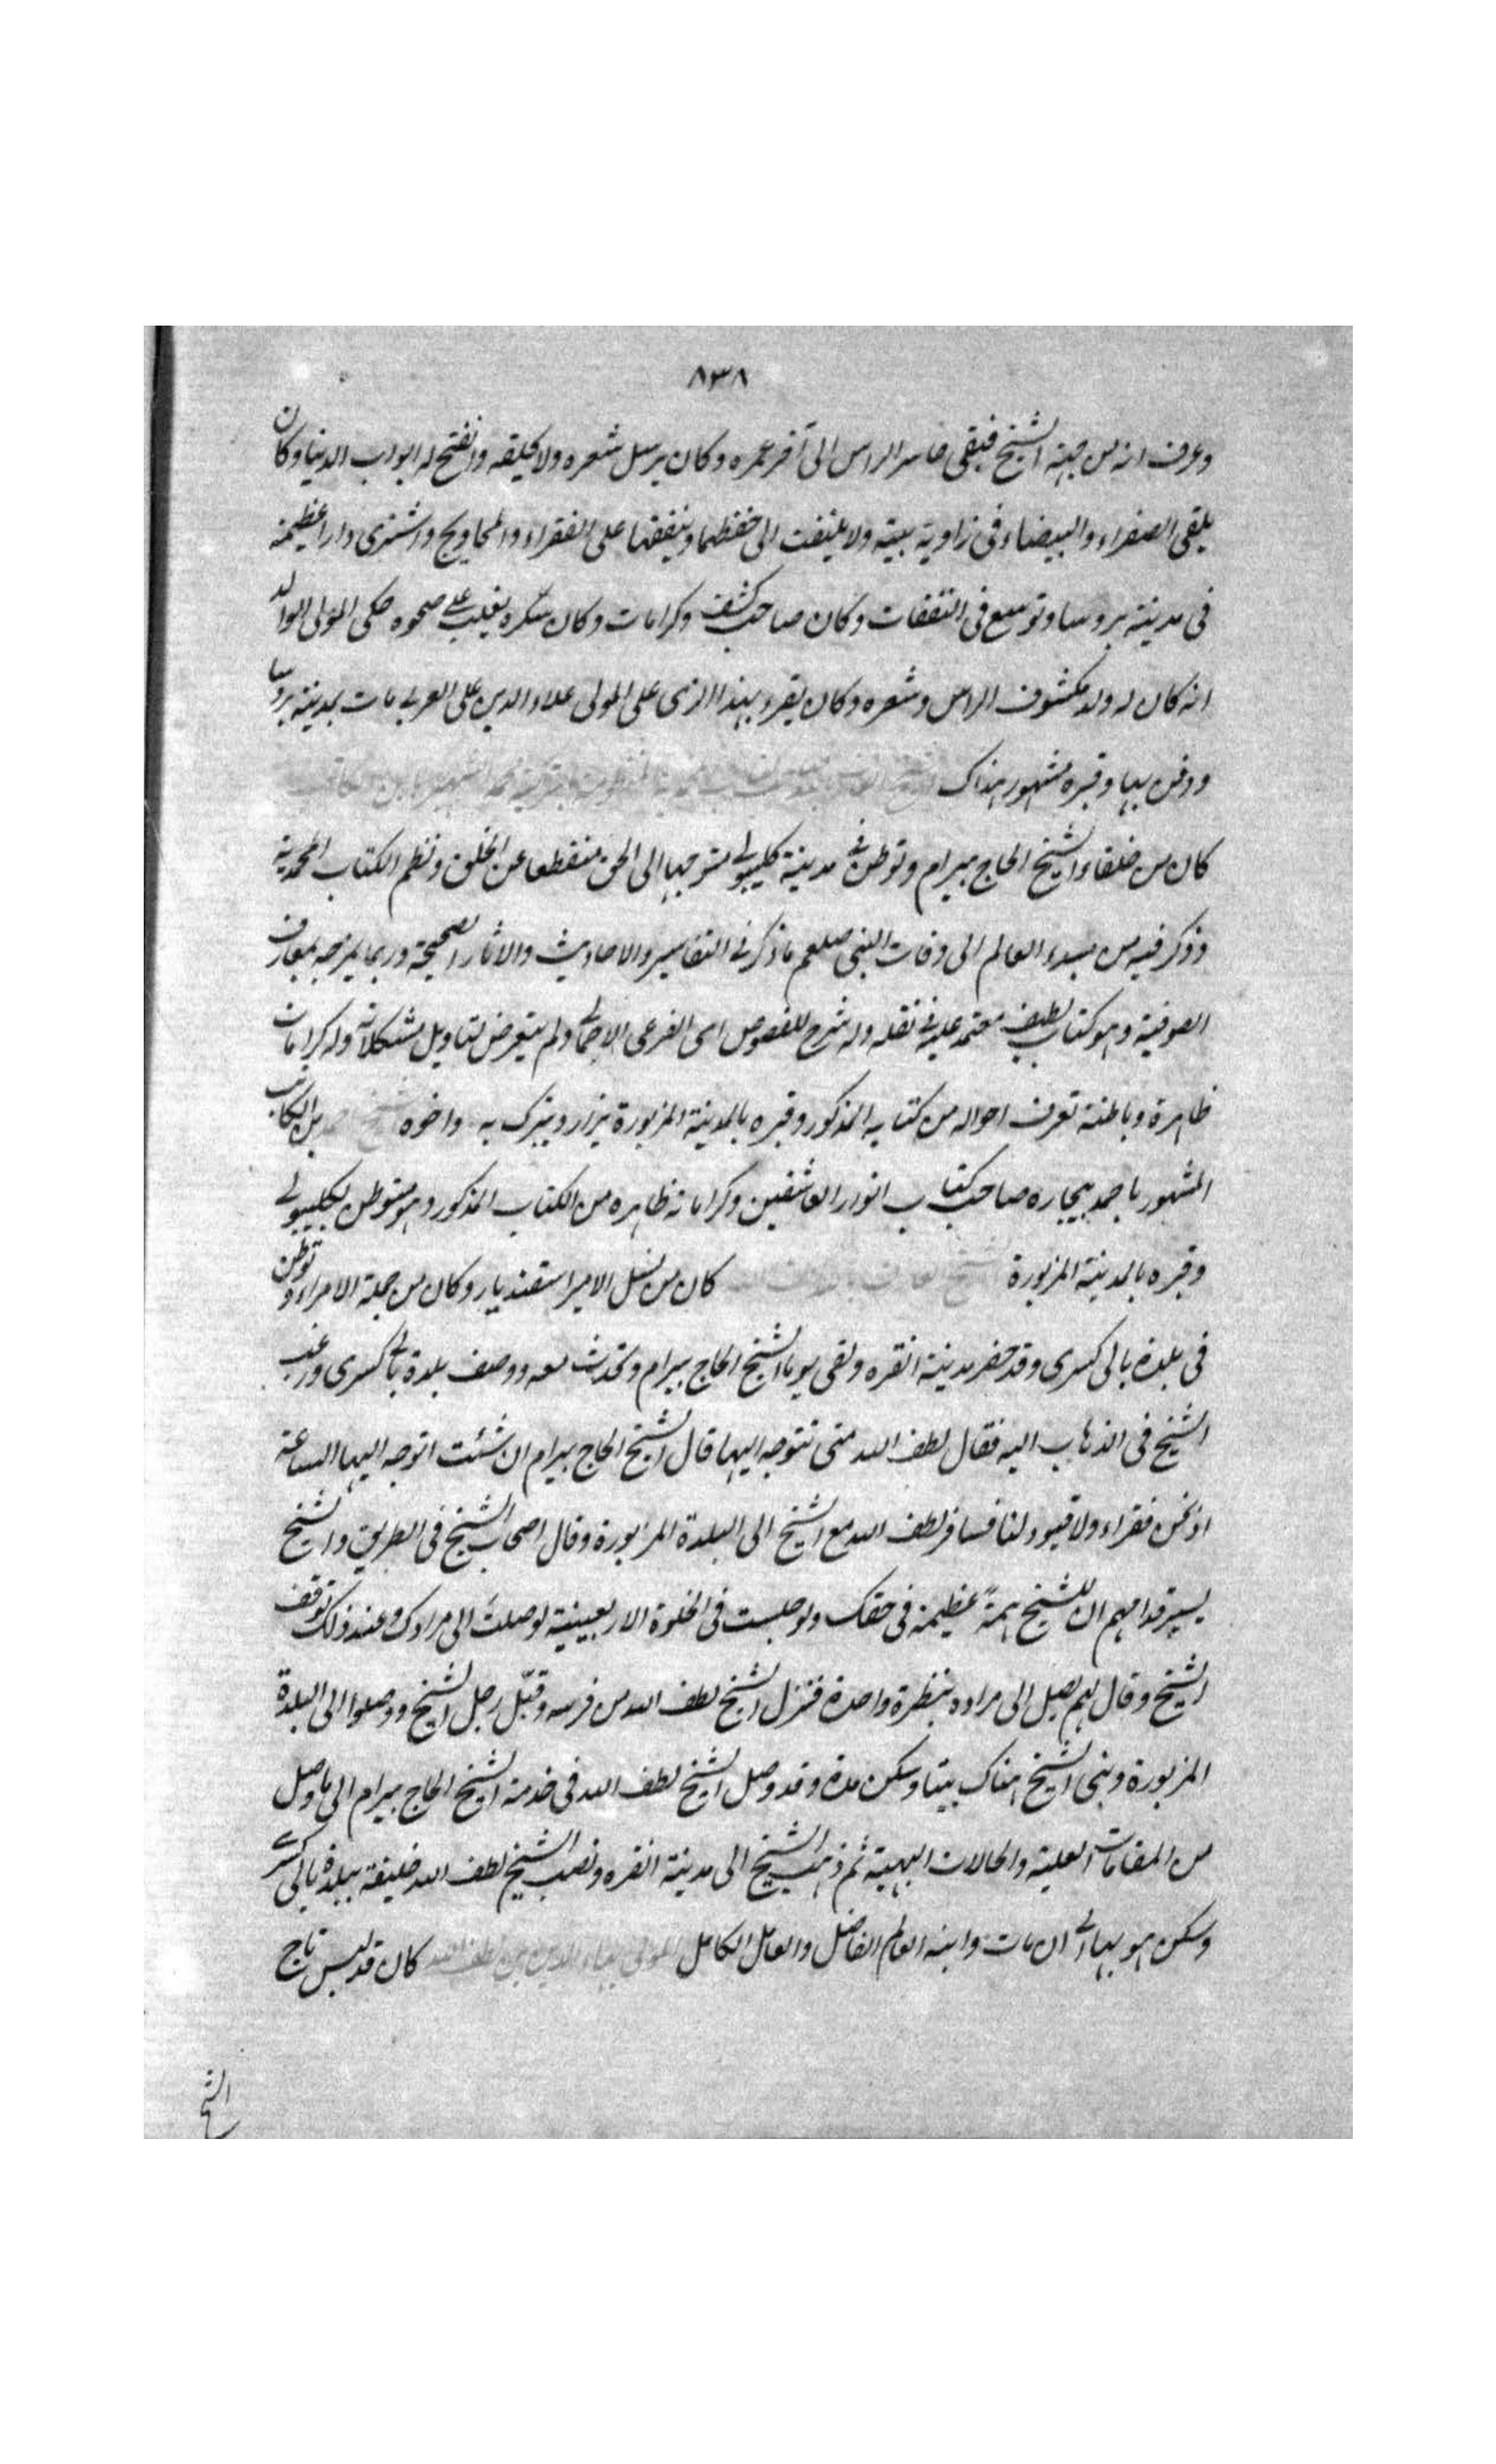 ٨٣٨
وعرف انه من جهة الشيخ فبقى حاسر الراس الى آخر عمره وكان يرسل شعره ولا يحلقه وانفتح له ابواب الدنيا وكان
يلقى الصفراء والبيضاء فى زاوية بيته ولا يلتفت الى حفظهما وينفقها على الفقراء والمحاويج واشترى دارا عظيمة
فى مدينة بروسا وتوسع فى النفقات وكان صاحب كشف وكرامات وكان سكره يغلب على صحوه حكى المولى الوالد
انه كان له ولد مكشوف الراس وشعره وكان يقرء بهذا الزى على المولى علاء الدين على العربى مات بمدينة بروسا
ودفن بها وقبره مشهور هناك
كان من خلفاء الشيخ الحاج بيرام وتوطن فى مدينة كليبولى متوجها الى الحق منقطعا عن الخلق ونظم الكتاب المحمدية
وذكر فيه من مبدء العالم الى وفات النبى صلعم ما ذكر فى التفاسير والاحاديث والاثار الصحيحة وربما يمزجه بمعارف
الصوفية وهو كتاب لطيف معتمد عليه فى نقله وله شرح للفصوص اى الفرعى الاجمالى ولم يتعرض لتاويل مشكلاته وله كرامات
ظاهرة وباطنة تعرف احواله من كتابه المذكور وقبره بالمدينة المزبورة يزار ويتبرك به واخوه الشيخ بن الكاتب
المشهور باحمد بيجاره صاحب كتاب انوار العاشقين وكراماته ظاهره من الكتاب المذكور وهو متوطن بكليبولى
وقبره بالمدينة المزبورة الشيخ العارف بالله كان من نسل الامير اسفنديار وكان من جملة الامراء وتوطن
فى بلدة بالى كسرى وقد حضر مدينة انقره ولقى يوما الشيخ الحاج بيرام وتحدث معه ووصف بلدة بالى كسرى ورغب
الشيخ فى الذهاب اليه فقال لطف الله متى تتوجه اليها قال الشيخ الحاج بيرام ان شئت اتوجه اليها الساعة
اذ نحن فقراء ولا قيود لنا فسافر لطف الله مع الشيخ الى البلدة المزبورة وقال اصحاب الشيخ فى الطريق والشيخ
يسير قدامهم ان للشيخ همةً عظيمة فى حقك ولو جلست فى الخلوة الاربعينية لوصلت الى مرادك وعند ذلك توقف
الشيخ وقال لهم يصل الى مراده بنظرة واحدة فنزل الشيخ لطف الله من فرسه وقبّل رجل الشيخ ووصلوا الى البلدة
المزبورة وبنى الشيخ هناك بيتا وسكن مدة وقد وصل الشيخ لطف الله فى خدمة الشيخ الحاج بيرام الى ما وصل
من المقامات العلية والحالات البهية ثم ذهب الشيخ الى مدينة انقره ونصب الشيخ لطف الله خليفة ببلدة بالى كسرى
وسكن هو بها الى ان مات وابنه العالم الفاضل والعامل الكامل المولى بهاء الدين بن لطف الله كان قد لبس تاج
الشيخ